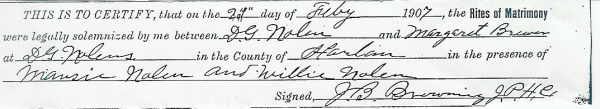 THIS IS TO CERTIFY, that on the 24" day of July 1907, the Rites of Matrimony
were legally solemnized by me between D.G. Nolen and Margaret Brewer
at D.G. Nolens in the County of Harlan in the presence of
Mansie Nolen and Willie Nolen
Signed, J.B. Browning J.P.H.C.